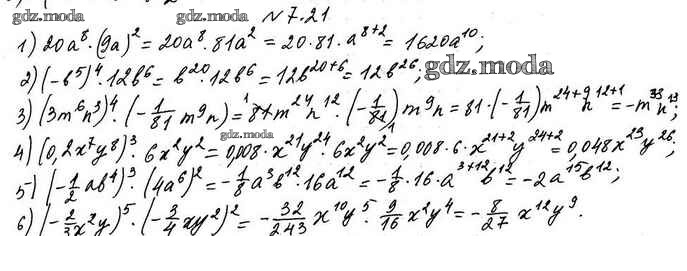 gdz.moda gdz.moda gdz.moda
№ 7.21
1) 20a⁸·(9a)² = 20a⁸·81a² = 20·81·a⁸⁺² = 1620a¹⁰;
2) (-b⁵)⁴·12b⁶ = b²⁰·12b⁶ = 12b²⁰⁺⁶ = 12b²⁶; gdz.moda
3) (3m⁶n³)⁴·(-1/81 m⁹n) = 81m²⁴n¹²·(-1/81)m⁹n = 81·(-1/81)m²⁴⁺⁹n¹²⁺¹ = -m³³n¹³;
gdz.moda
4) (0,2x⁷y⁸)³·6x²y² = 0,008·x²¹y²⁴·6x²y² = 0,008·6·x²¹⁺²y²⁴⁺² = 0,048x²³y²⁶;
5) (-1/2 ab⁴)³·(4a⁶)² = -1/8 a³b¹²·16a¹² = -1/8·16·a³⁺¹²b¹² = -2a¹⁵b¹²;
6) (-2/3 x²y)⁵·(-3/4 xy²)² = -32/243 x¹⁰y⁵·9/16 x²y⁴ = -8/27 x¹²y⁹.